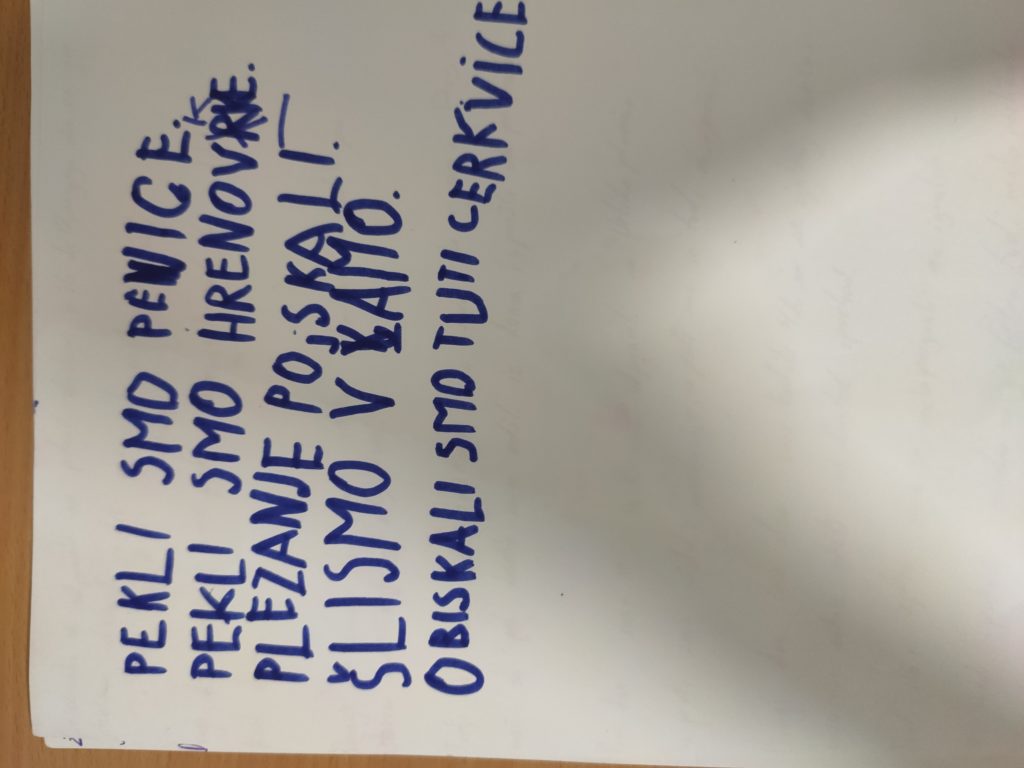 PEKLI SMO PENICE.
PEKLI SMO HRENOVKE.
PLEZANJE PO SKALI.
ŠLISMO V JAMO.
OBISKALI SMO TUTI CERKVICE